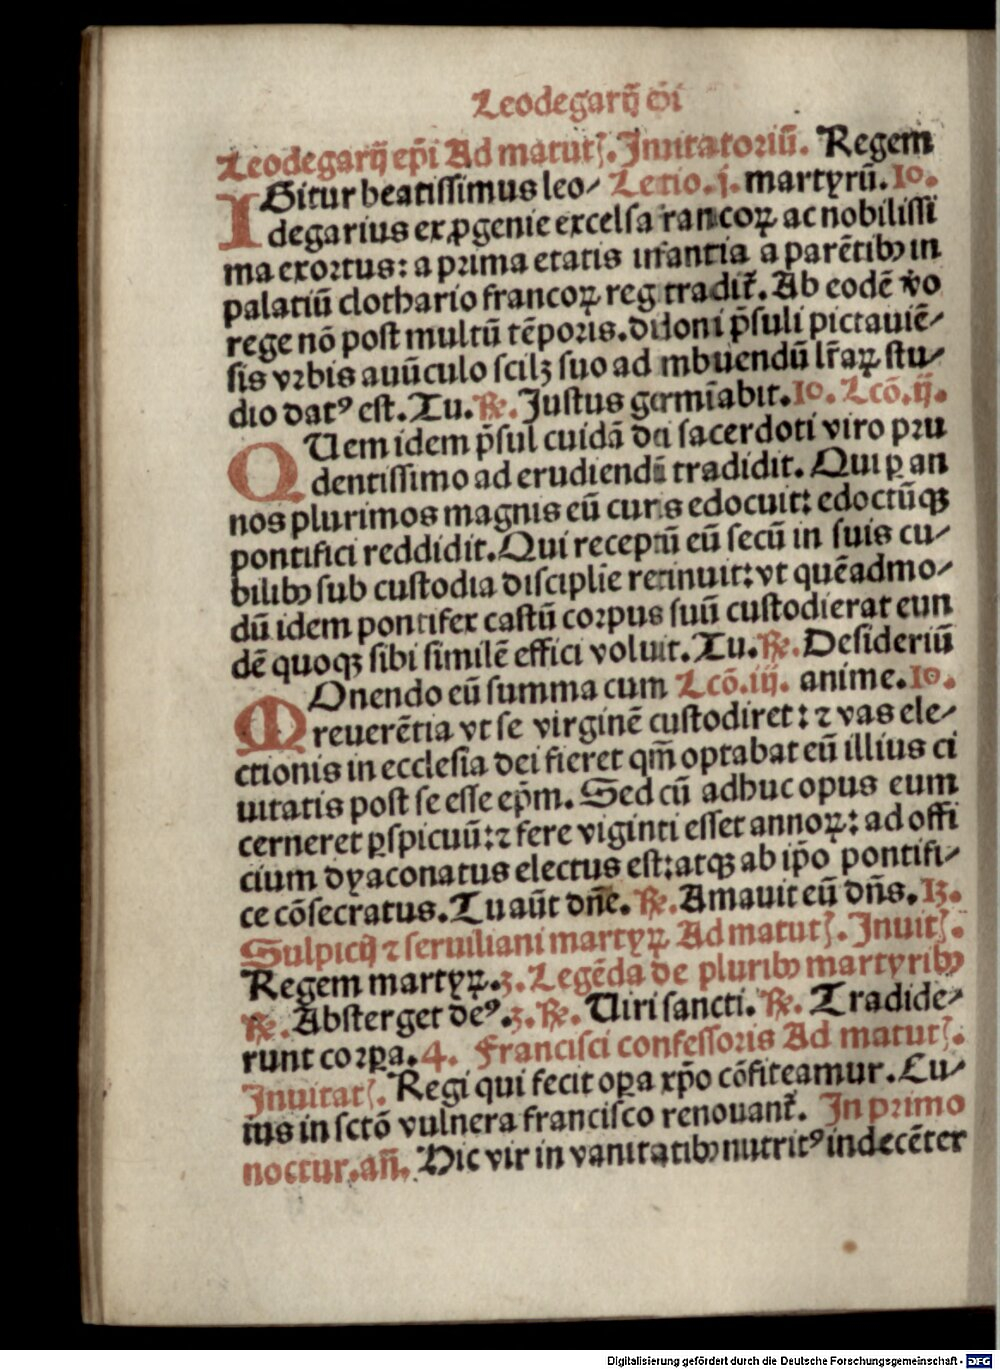 Leodegarij ep̄i
Leodegarij ep̄i Ad matutꝭ. Inuitatoriū. Regem
IGitur beatissimus leo⸗ Lectio.j. martyrū.10.
degarius ex ꝓgenie excelsa francoꝝ ac nobilissi
ma exortus: a prima etatis infantia a parētibꝯ in
palatiū clothario francoꝝ regi tradit̄. Ab eodē v̄o
rege nō post multū tēporis. didoni p̄suli pictauiē⸗
sis vrbis auūculo scilꝫ suo ad imbuendū lr̄aꝝ stu⸗
dio datꝰ est. Tu. ℟. Justus germīabit.10. Lcō.ij.
QUem idem p̄sul cuidā dei sacerdoti viro pru
dentissimo ad erudiendū tradidit. Qui ꝑ an
nos plurimos magnis eū curis edocuit: edoctūqꝫ
pontifici reddidit. Qui receptū eū secū in suis cu⸗
bilibꝯ sub custodia discipline retinuit: vt quēadmo⸗
dū idem pontifex castū corpus suū custodierat eun
dē quoqꝫ sibi similē effici voluit. Tu. ℟. Desideriū
MOnendo eū summa cum Lcō.iij. anime.10.
reuerētia vt se virginē custodiret: ⁊ vas ele⸗
ctionis in ecclesia dei fieret qm̄ optabat eū illius ci
uitatis post se esse ep̄m. Sed cū adhuc opus eum
cerneret ꝑspicuū: ⁊ fere viginti esset annoꝝ: ad offi
cium dyaconatus electus est: atqꝫ ab ip̄o pontifi⸗
ce cōsecratus. Tu aūt dn̄e. ℟. Amauit eū dn̄s.13.
Sulpicij ⁊ seruiliani martyꝝ Ad matutꝭ. Inuitꝭ.
Regem martyꝝ.3. Legēda de pluribꝯ martyribꝯ
℟. Absterget deꝰ.3. ℟. Uiri sancti. ℟. Tradide⸗
runt corꝑa.4. Francisci confessoris Ad matutꝭ.
Inuitatꝭ. Regi qui fecit oꝑa xp̄o cōfiteamur. Cu⸗
ius in sctō vulnera francisco renouant̄. In primo
noctur. an̄. Hic vir in vanitatibꝯ nutritꝰ indecēter